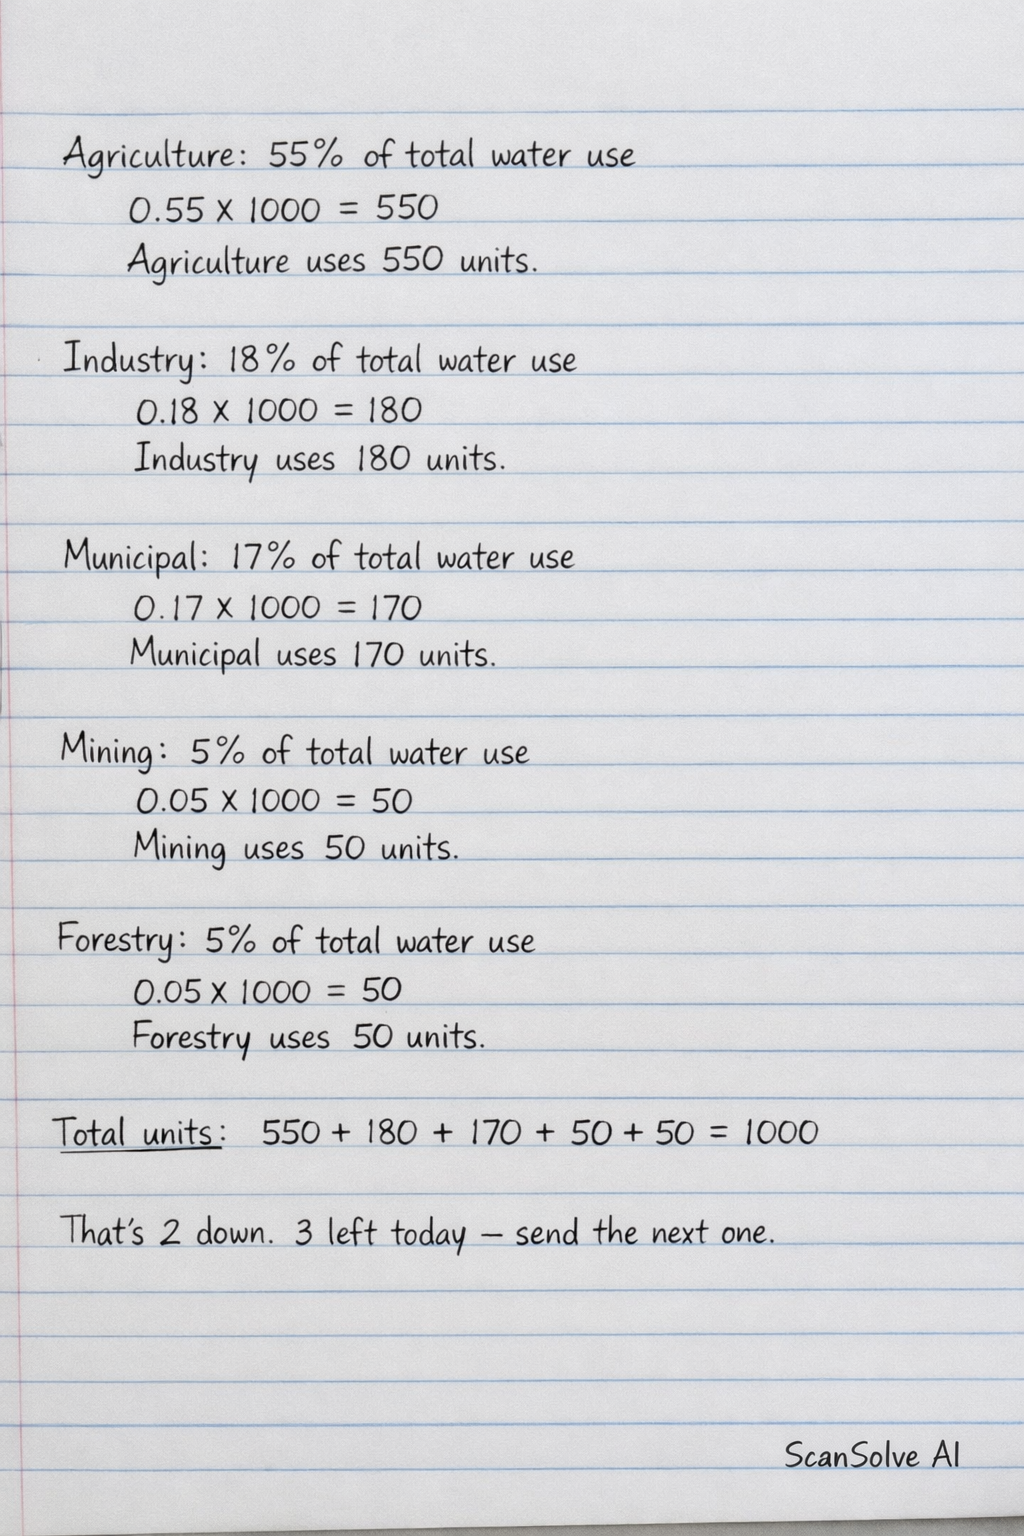 Agriculture: 55% of total water use
0.55 x 1000 = 550
Agriculture uses 550 units.
Industry: 18% of total water use
0.18 x 1000 = 180
Industry uses 180 units.
Municipal: 17% of total water use
0.17 x 1000 = 170
Municipal uses 170 units.
Mining: 5% of total water use
0.05 x 1000 = 50
Mining uses 50 units.
Forestry: 5% of total water use
0.05 x 1000 = 50
Forestry uses 50 units.
Total units: 550 + 180 + 170 + 50 + 50 = 1000
That's 2 down. 3 left today — send the next one.
ScanSolve AI